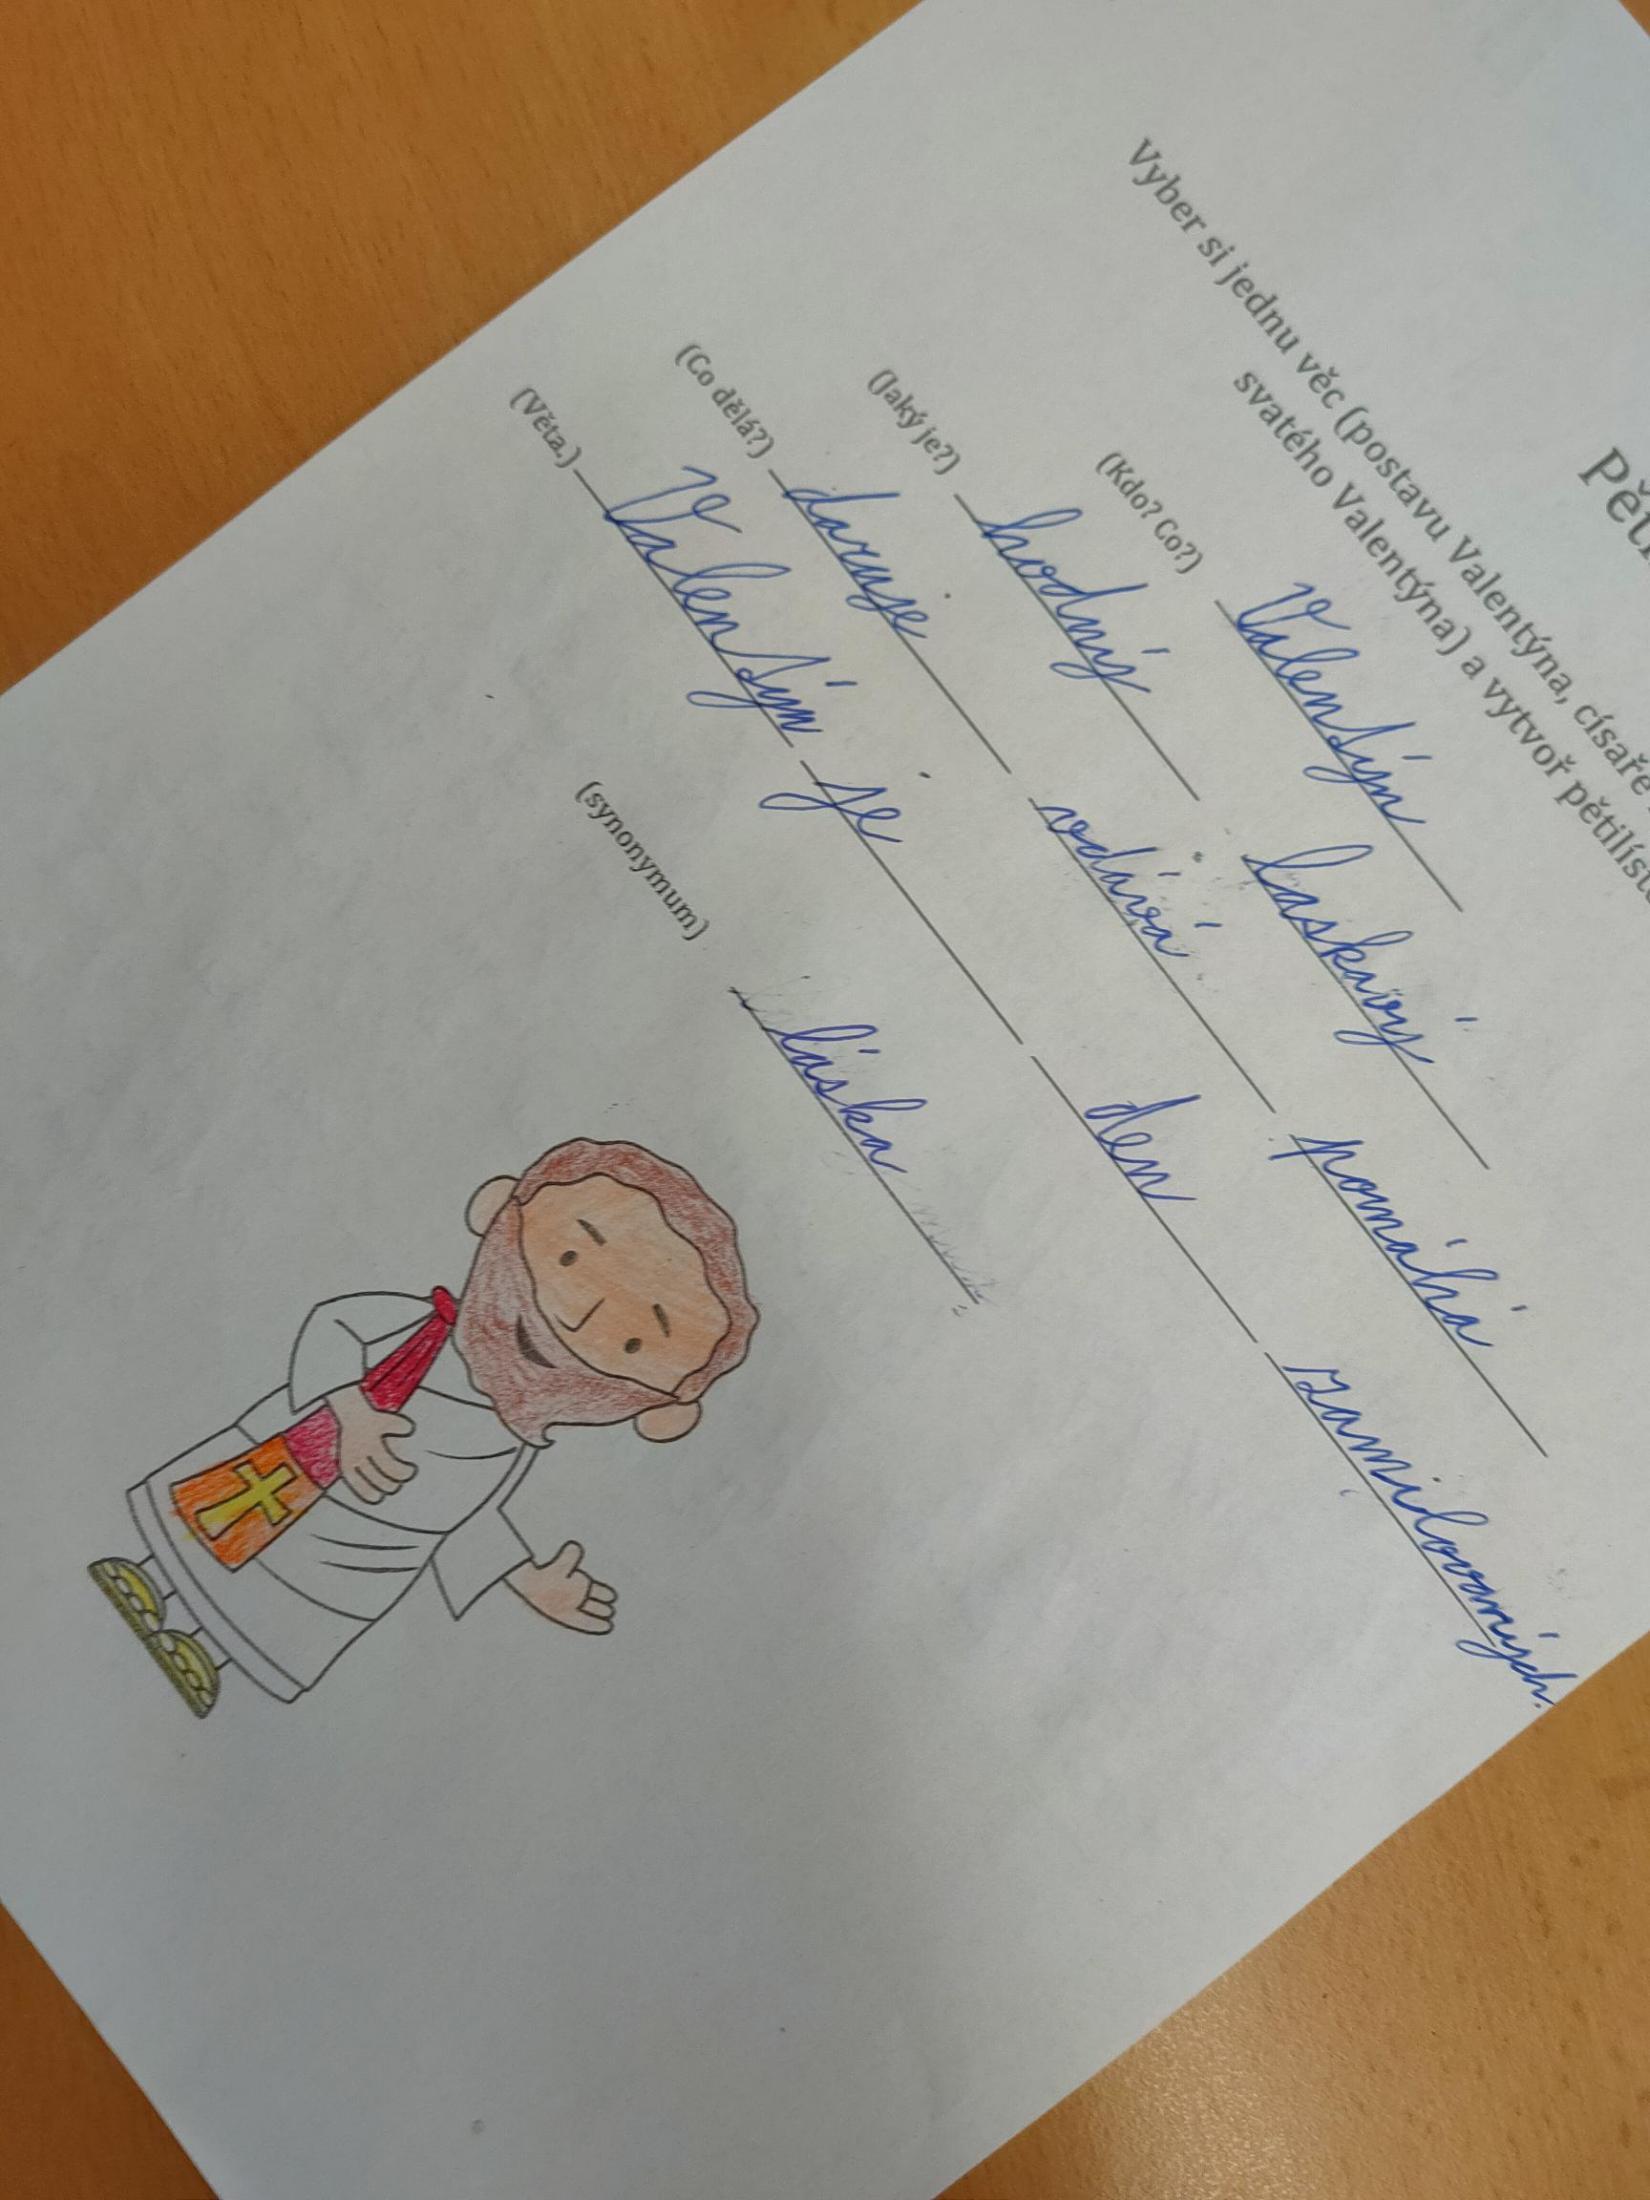 Pětil
Vyber si jednu věc (postavu Valentýna, císaře
svatého Valentýna) a vytvoř pětilíst
(Kdo? Co?) Valentýn
(Jaký je?) hodný laskavý
(Co dělá?) daruje vdává pomáhá
(Věta.) Valentýn je den zamilovaných.
(synonymum) láska